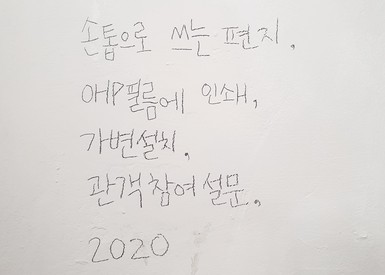 손톱으로 쓰는 편지,
OHP필름에 인쇄,
가변설치,
관객참여설문,
2020